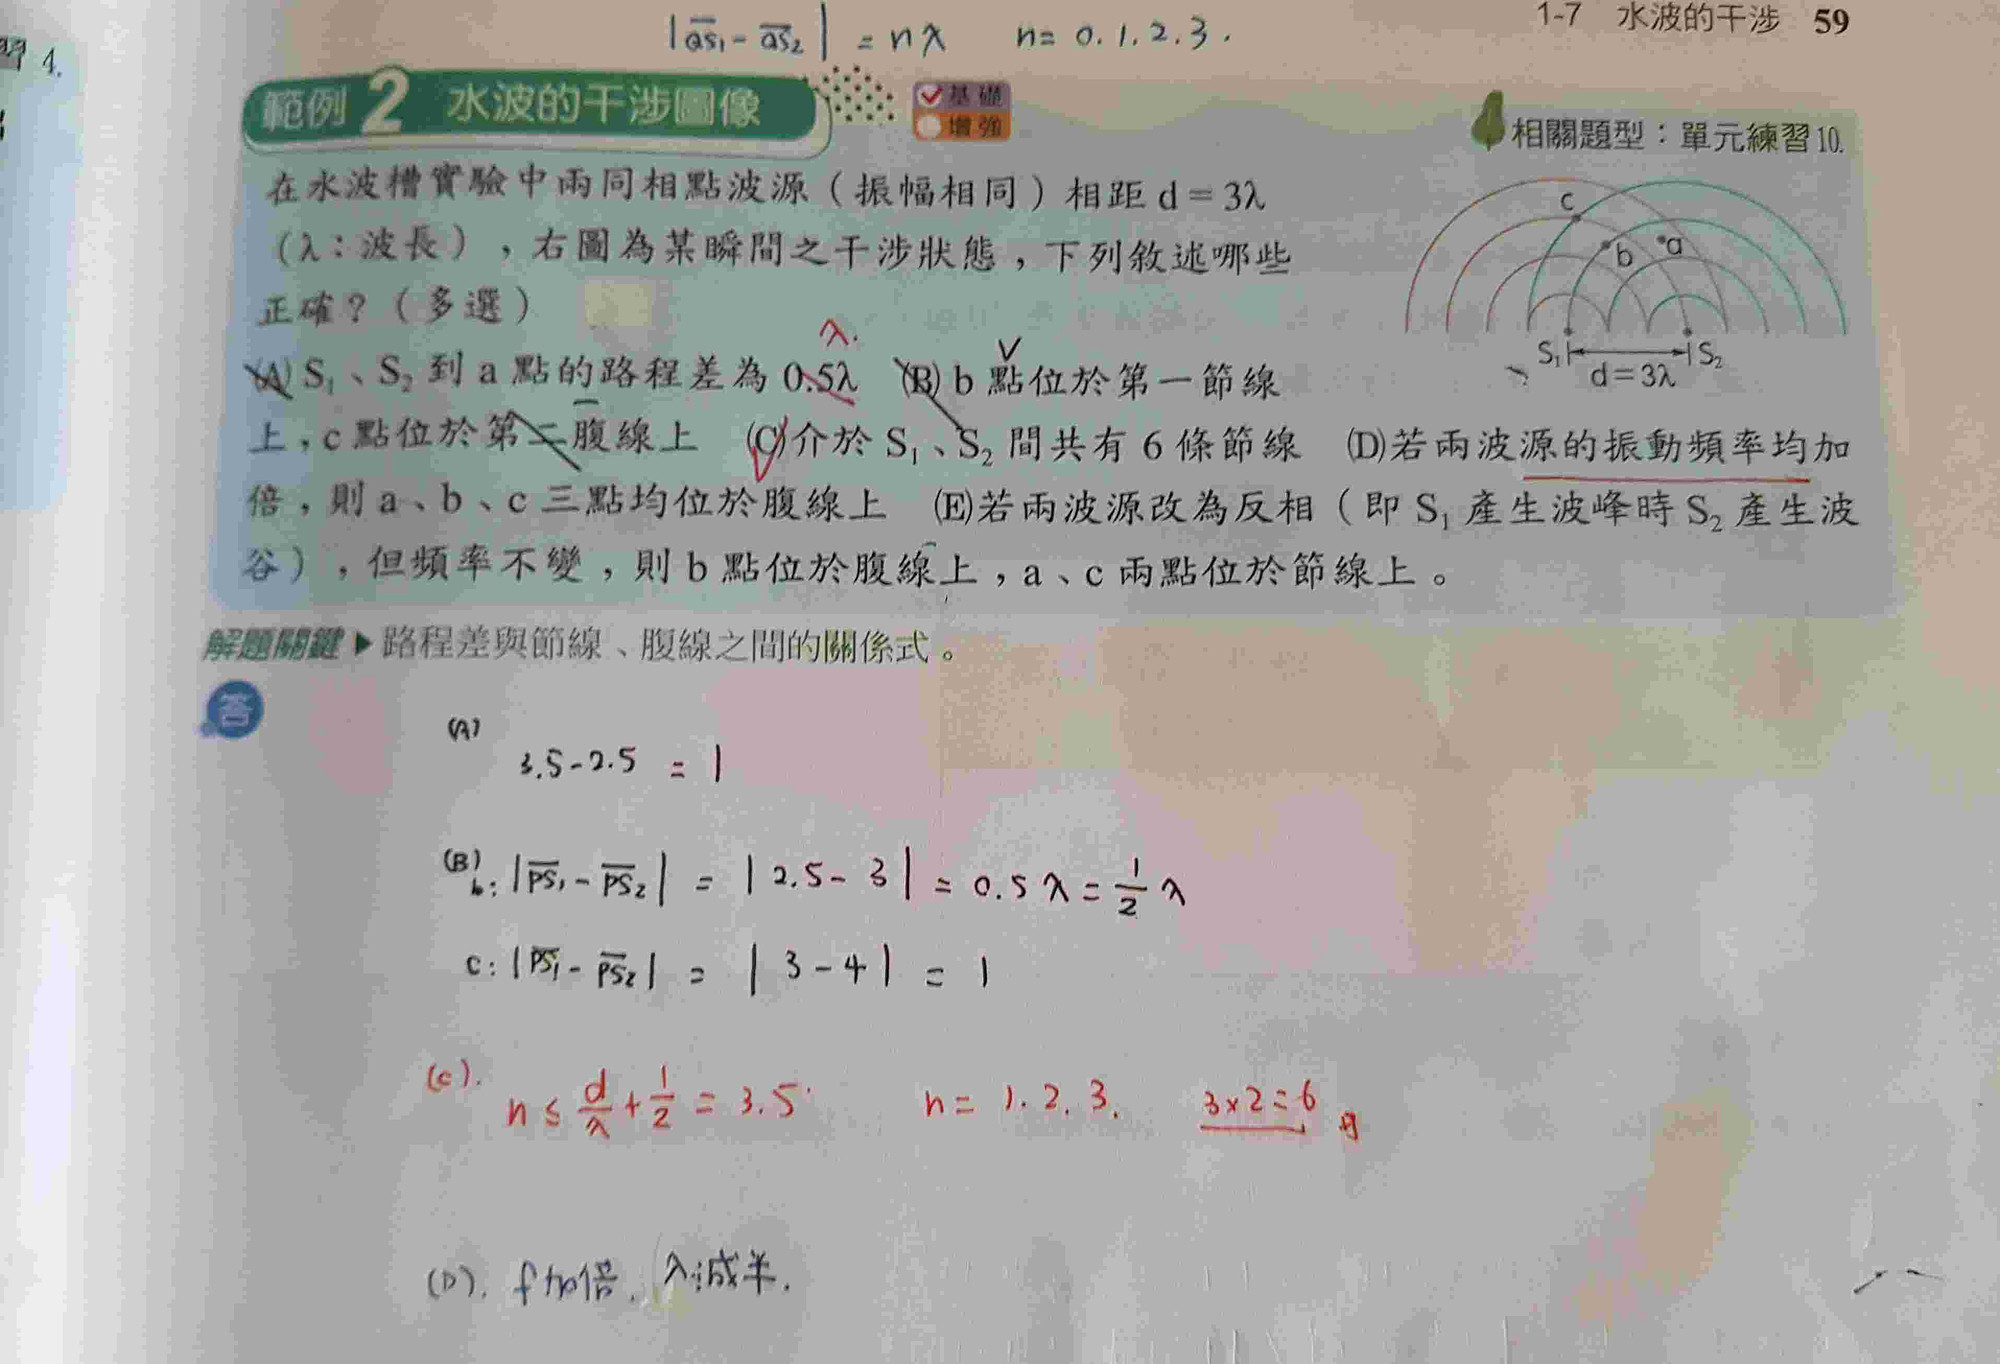 |aS₁ - aS₂| = nλ  n= 0.1.2.3.
1-7 水波的干涉 59
4.
範例 2 水波的干涉圖像
基礎
增強
相關題型：單元練習10.
在水波槽實驗中兩同相點波源（振幅相同）相距 d = 3λ
（λ：波長），右圖為某瞬間之干涉狀態，下列敘述哪些
正確？（多選）
λ.
(A) S₁、S₂ 到 a 點的路程差為 0.5λ (B) b 點位於第一節線
上，c 點位於第二腹線上 (C)介於 S₁、S₂ 間共有 6 條節線 (D)若兩波源的振動頻率均加
倍，則 a、b、c 三點均位於腹線上 (E)若兩波源改為反相（即 S₁ 產生波峰時 S₂ 產生波
谷），但頻率不變，則 b 點位於腹線上，a、c 兩點位於節線上。
c
b
a
S₁
S₂
d = 3λ
解題關鍵▶路程差與節線、腹線之間的關係式。
答
(A)
3.5 - 2.5 = 1
(B) b: |PS₁ - PS₂| = |2.5 - 3| = 0.5λ = 1/2 λ
c: |PS₁ - PS₂| = |3 - 4| = 1
(c). n ≤ d/λ + 1/2 = 3.5 n= 1.2.3. 3×2=6
(D). f加倍. λ減半.